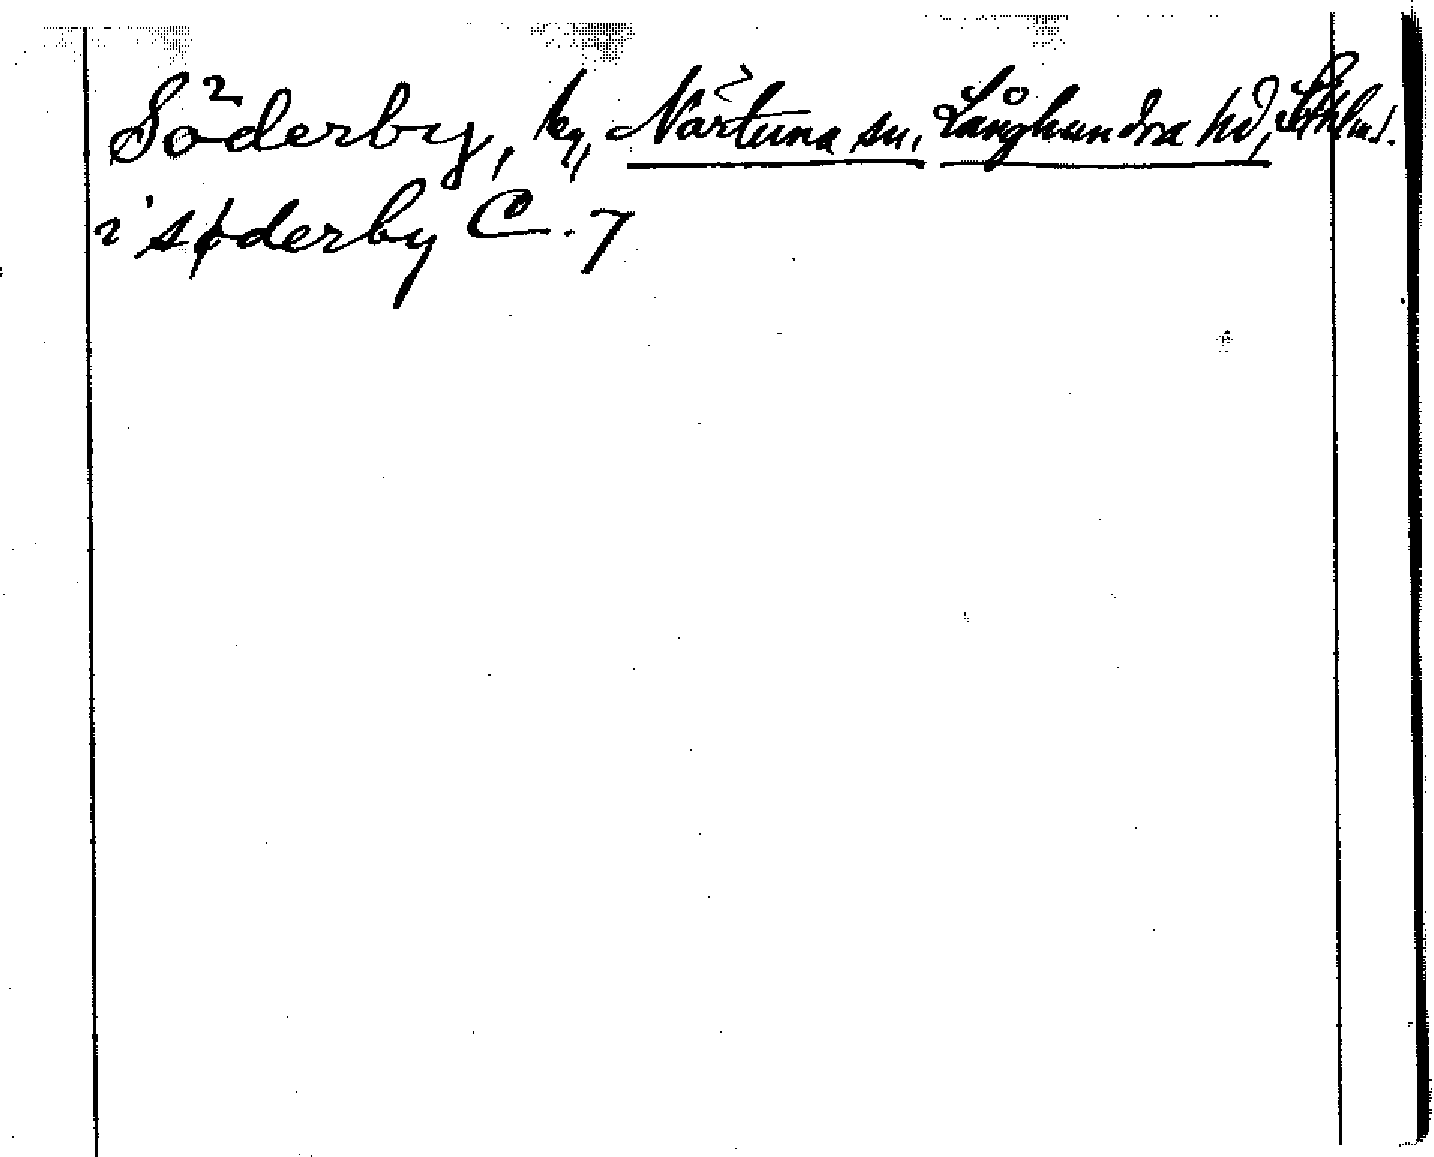 Söderby, by, Närtuna sn, Långhundra hd, Sthlms l.
i søderby C. 7